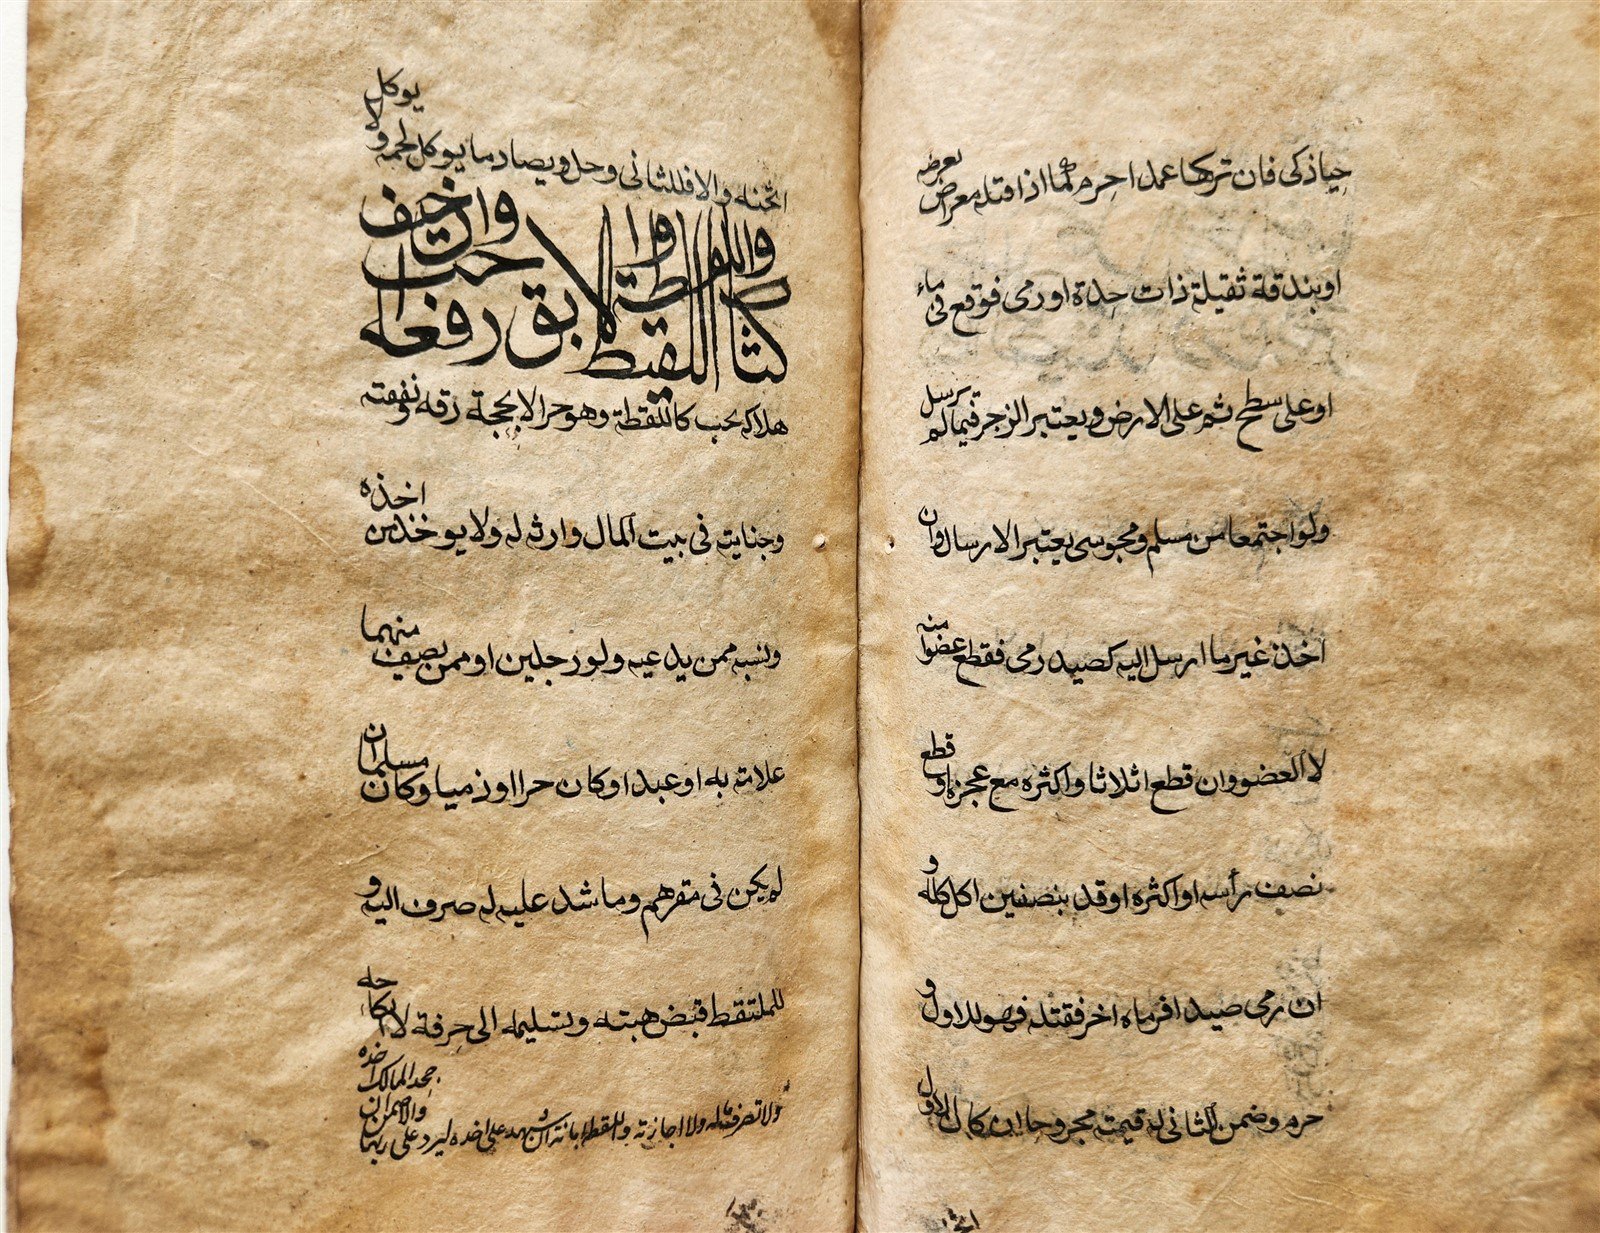 حيا ذكى فان تركها عمدا حرم كما اذا قتله معراض بعرضه
او بندقة ثقيلة ذات حدة او رمى فوقع فى ماء
او على سطح ثم على الارض ويعتبر الزجر فيما لم يرسل
ولو اجتمعا من مسلم ومجوسى يعتبر الارسال وان
اخذ غير ما ارسل اليه كصيد رمى فقطع عضوا منه
لا العضو وان قطع اثلاثا واكثره مع عجزه او قطع
نصف رأسه او اكثره او قد بنصفين اكل كله و
ان رمى صيدا فرماه اخر فقتله فهو للاول و
حرم وضمن الثانى له قيمته مجروحا ان كان الاول
اثخنه
اثخنه والا فللثانى وحل ويصاد ما يوكل لحمه ولا يوكل
كتاب اللقيط واللقطة والابق رفعه احب وان خيف
هلاكه يجب كاللقطة وهو حر الا بحجة رقه ونفقته
وجنايته فى بيت المال وارثه له ولا يوخذ من اخذه
ونسبه ممن يدعيه ولو رجلين او ممن يصف منهما
علامته به او عبدا وكان حرا او ذميا وكان مسلما ان
لم يكن فى مقرهم وما شد عليه له صرف اليه و
للملتقط قبض هبته وتسليمه الى حرفة لا انكاحه
ولا تصرف ماله ولا اجازته واللقطة امانة ان اشهد على اخذه ليرد على ربها والا ضمن ان جحد المالك اخذه